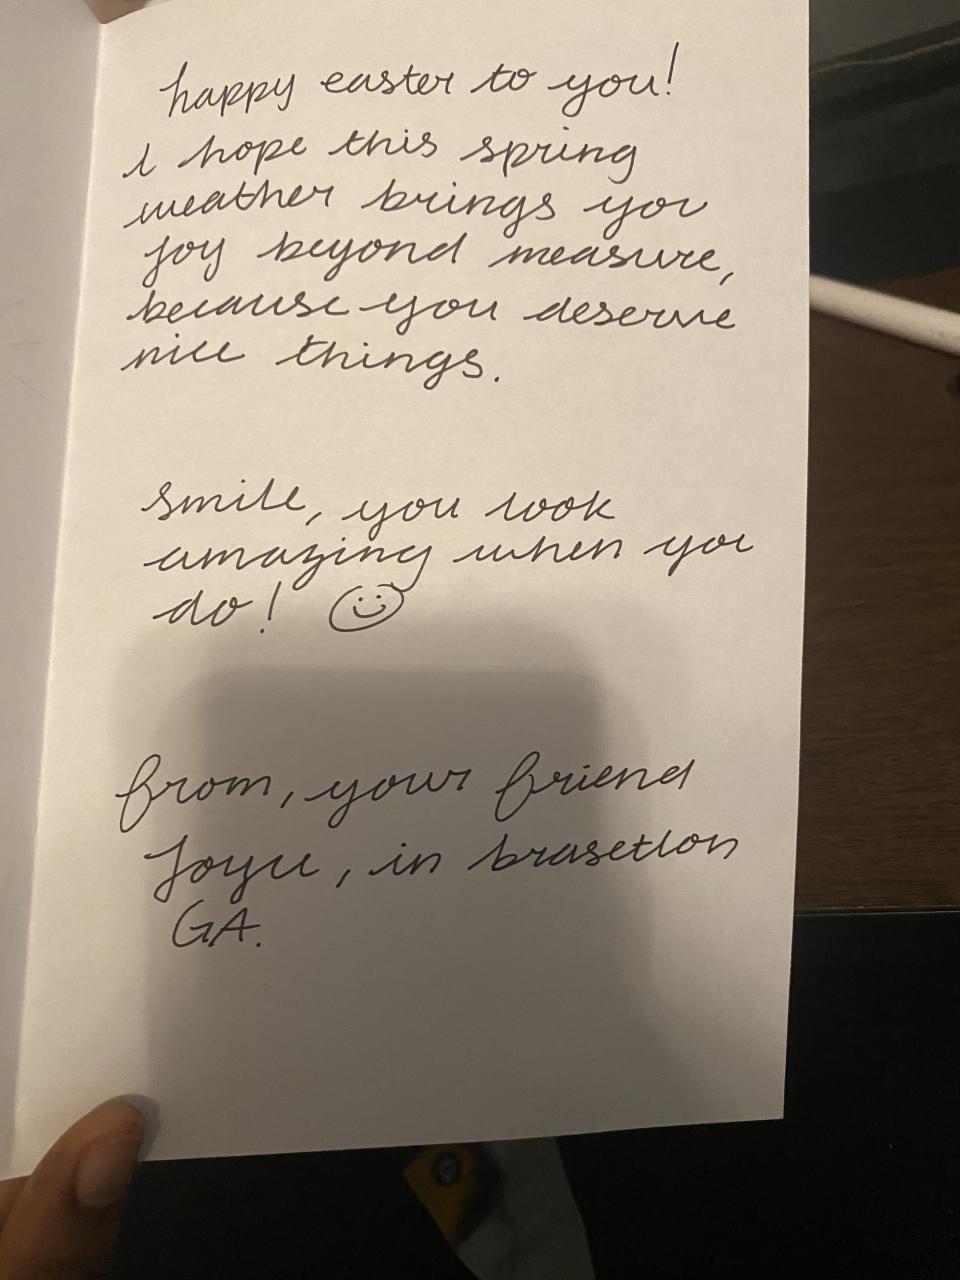 happy easter to you!
i hope this spring
weather brings you
joy beyond measure,
because you deserve
nice things.
smile, you look
amazing when you
do! ☺
from, your friend
Joyce, in braselton
GA.